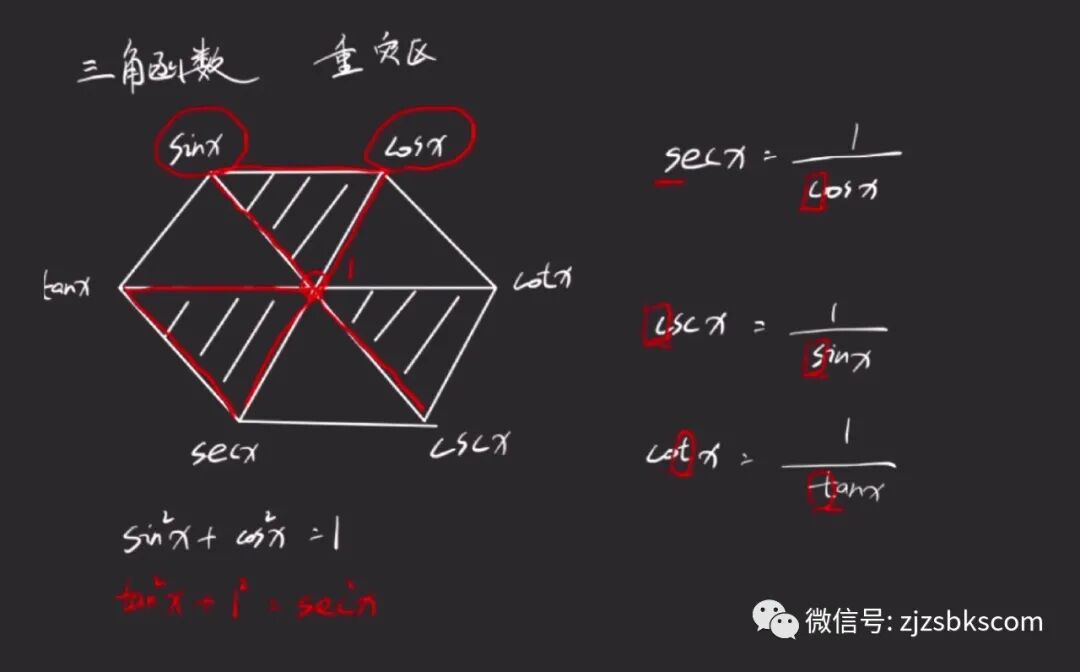 三角函数 重灾区
sinx cosx
1
tanx cotx
secx cscx
sin²x + cos²x = 1
tan²x + 1² = sec²x
secx = 1/cosx
cscx = 1/sinx
cotx = 1/tanx
微信号: zjzsbkscom